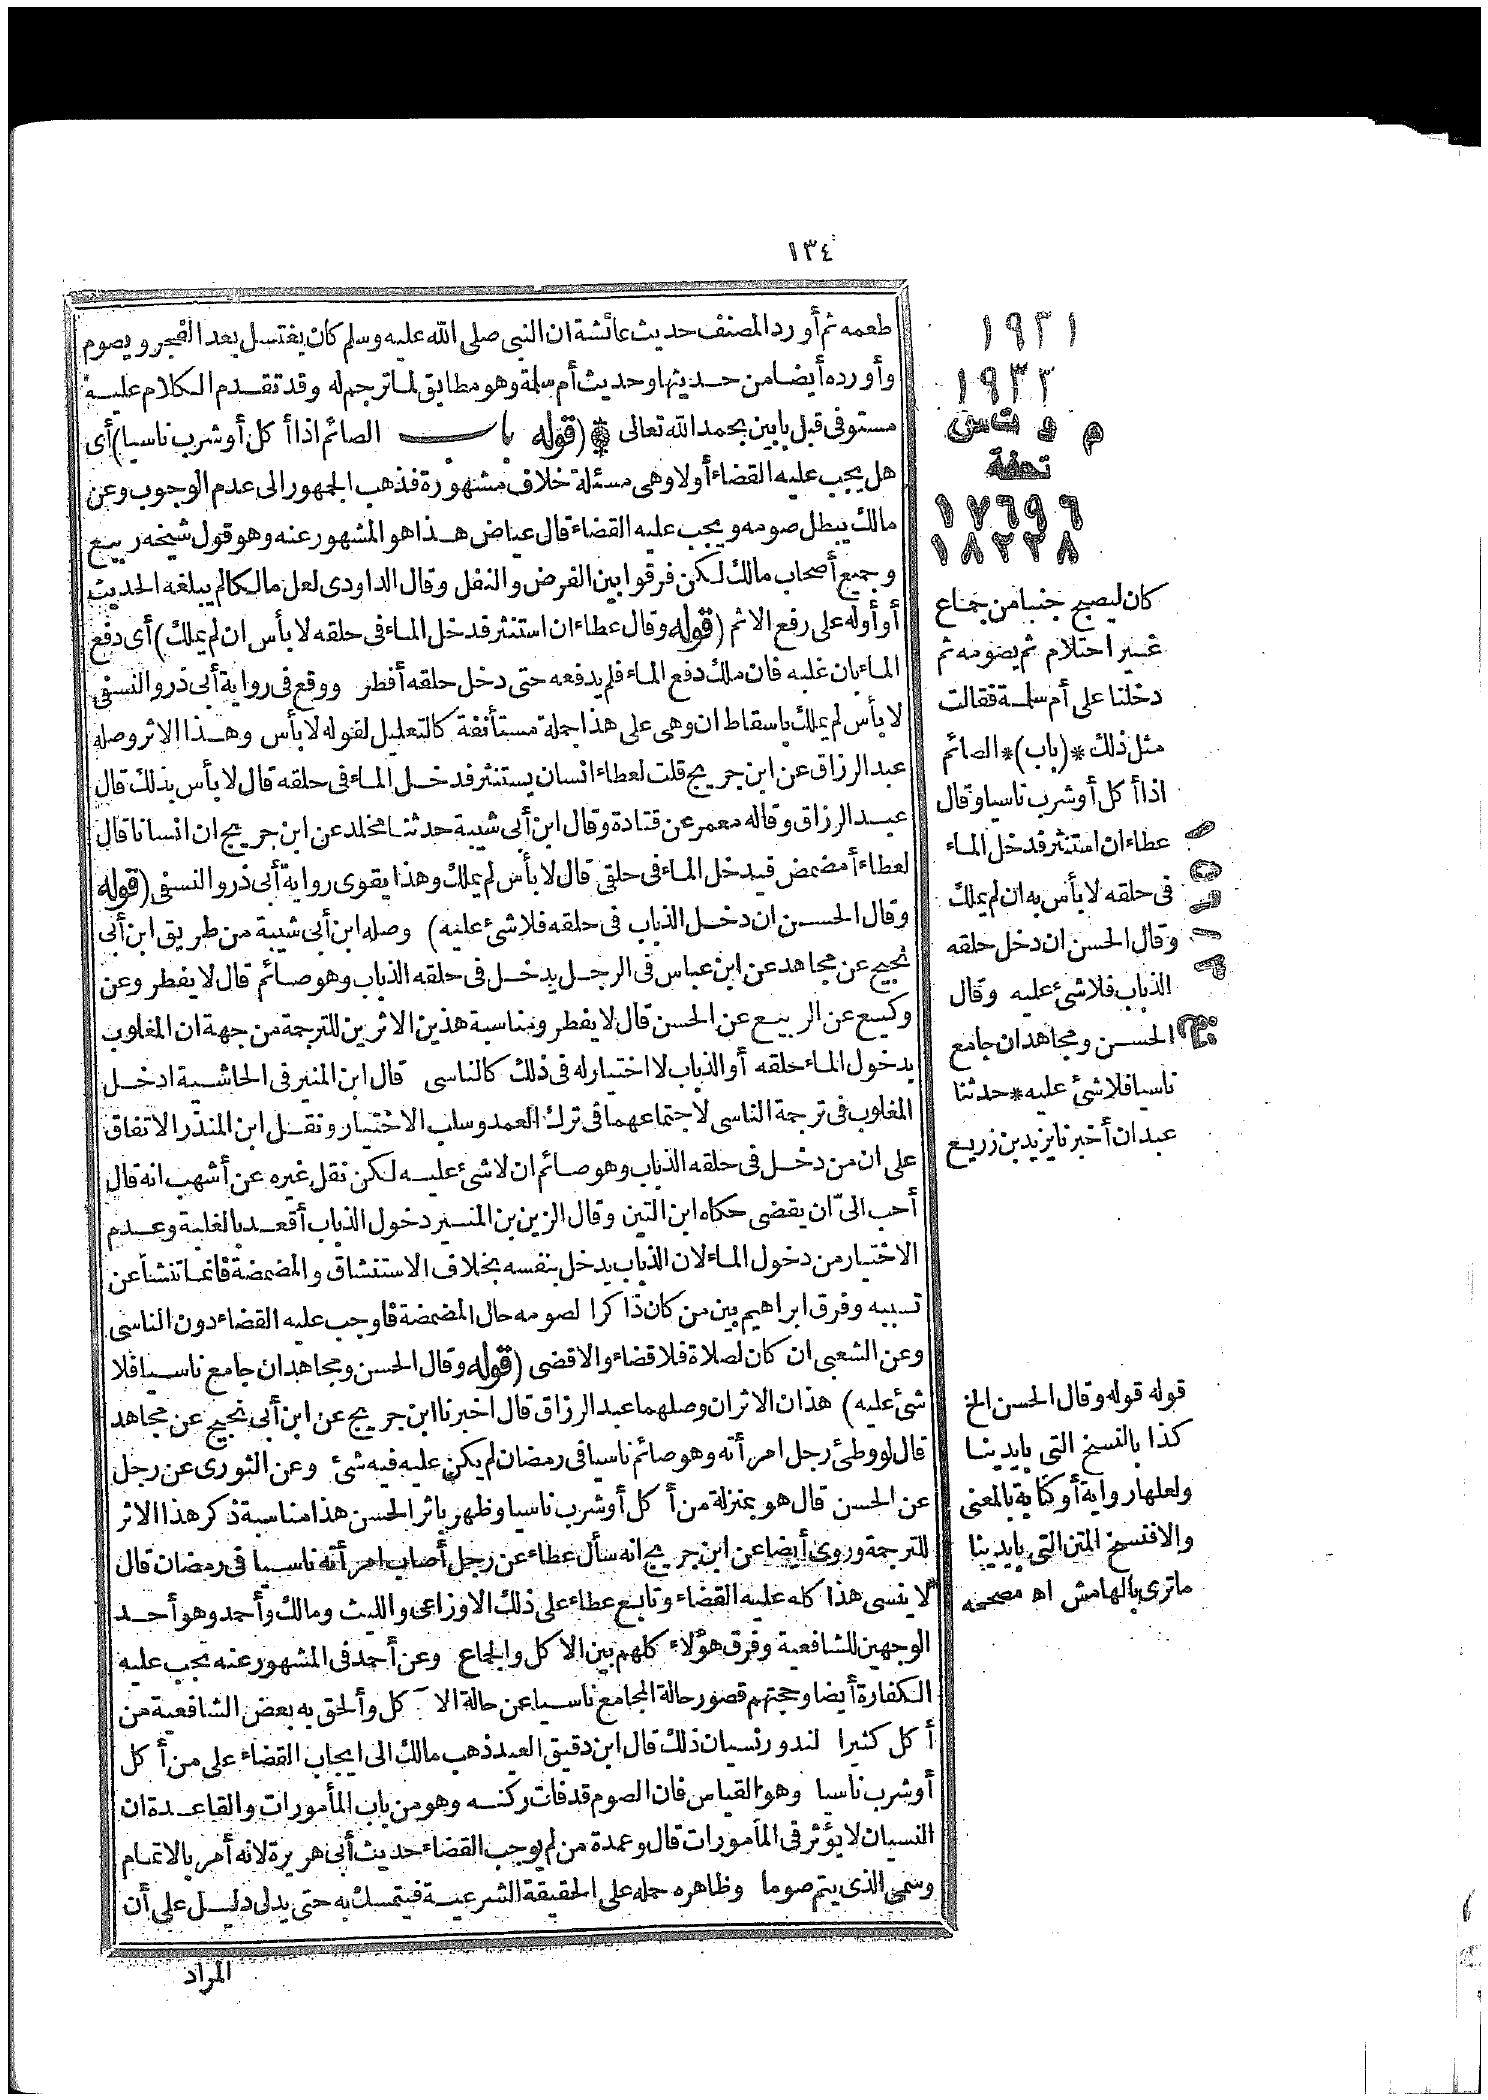 ١٣٤
طعمه ثم أورد المصنف حديث عائشة ان النبي صلى الله عليه وسلم كان يغتسل بعد الفجر ويصوم
وأورده أيضا من حديثها وحديث أم سلمة وهو مطابق لما ترجم له وقد تقدم الكلام عليه
مستوفى قبل بابين بحمد الله تعالى (قوله باب الصائم اذا أكل أو شرب ناسيا) أى
هل يجب عليه القضاء أولا وهى مسئلة خلاف مشهورة فذهب الجمهور الى عدم الوجوب وعن
مالك يبطل صومه ويجب عليه القضاء قال عياض هذا هو المشهور عنه وهو قول شيخه ربيع
وجميع أصحاب مالك لكن فرقوا بين الفرض والنفل وقال الداودى لعل مالكا لم يبلغه الحديث
أو أوله على رفع الاثم (قوله وقال عطاء ان استنثر فدخل الماء فى حلقه لا بأس ان لم يملك) أى دفع
الماء بان غلبه فان ملك دفع الماء فلم يدفعه حتى دخل حلقه أفطر ووقع فى رواية أبى ذر والنسفى
لا بأس لم يملك باسقاط ان وهى على هذا جملة مستأنفة كالتعليل لقوله لا بأس وهذا الاثر وصله
عبد الرزاق عن ابن جريج قلت لعطاء انسان يستنثر فدخل الماء فى حلقه قال لا بأس بذلك قال
عبد الرزاق وقاله معمر عن قتادة وقال ابن أبى شيبة حدثنا مخلد عن ابن جريج ان انسانا قال
لعطاء أمضمض فيدخل الماء فى حلقى قال لا بأس لم يملك وهذا يقوى رواية أبى ذر والنسفى (قوله
وقال الحسن ان دخل الذباب فى حلقه فلا شئ عليه) وصله ابن أبى شيبة من طريق ابن أبى
نجيح عن مجاهد عن ابن عباس فى الرجل يدخل فى حلقه الذباب وهو صائم قال لا يفطر وعن
وكيع عن الربيع عن الحسن قال لا يفطر ومناسبة هذين الاثرين للترجمة من جهة ان المغلوب
بدخول الماء حلقه أو الذباب لا اختيار له فى ذلك كالناسى قال ابن المنير فى الحاشية ادخل
المغلوب فى ترجمة الناسى لاجتماعهما فى ترك العمد وسلب الاختيار ونقل ابن المنذر الاتفاق
على ان من دخل فى حلقه الذباب وهو صائم ان لا شئ عليه لكن نقل غيره عن أشهب انه قال
أحب الىّ أن يقضى حكاه ابن التين وقال الزين بن المنير دخول الذباب أقعد بالغلبة وعدم
الاختيار من دخول الماء لان الذباب يدخل بنفسه بخلاف الاستنشاق والمضمضة فانما تنشأ عن
تسببه وفرق ابراهيم بين من كان ذاكرا لصومه حال المضمضة فاوجب عليه القضاء دون الناسى
وعن الشعبى ان كان لصلاة فلا قضاء والا قضى (قوله وقال الحسن ومجاهد ان جامع ناسيا فلا
شئ عليه) هذان الاثران وصلهما عبد الرزاق قال اخبرنا ابن جريج عن ابن أبى نجيح عن مجاهد
قال لو وطئ رجل امرأته وهو صائم ناسيا فى رمضان لم يكن عليه فيه شئ وعن الثورى عن رجل
عن الحسن قال هو بمنزلة من أكل أو شرب ناسيا وظهر باثر الحسن هذا مناسبة ذكر هذا الاثر
للترجمة وروى أيضا عن ابن جريج انه سأل عطاء عن رجل أصاب امرأته ناسيا فى رمضان قال
لا ينسى هذا كله عليه القضاء وتابع عطاء على ذلك الاوزاعى والليث ومالك وأحمد وهو أحد
الوجهين للشافعية وفرق هؤلاء كلهم بين الاكل والجماع وعن أحمد فى المشهور عنه يجب عليه
الكفارة أيضا وحجتهم قصور حالة المجامع ناسيا عن حالة الآكل وألحق به بعض الشافعية من
أكل كثيرا لندور نسيان ذلك قال ابن دقيق العيد ذهب مالك الى ايجاب القضاء على من أكل
أو شرب ناسيا وهو القياس فان الصوم قد فات ركنه وهو من باب المأمورات والقاعدة ان
النسيان لا يؤثر فى المأمورات قال وعمدة من لم يوجب القضاء حديث أبى هريرة لانه أمر بالاتمام
وسمى الذى يتم صوما وظاهره حمله على الحقيقة الشرعية فيتمسك به حتى يدل دليل على أن
المراد
١٩٣١
١٩٣٢
م د ت س
تحفة
١٧٦٩٦
١٨٢٢٨
كان ليصبح جنبا من جماع
غير احتلام ثم يصومه ثم
دخلنا على أم سلمة فقالت
مثل ذلك *(باب)* الصائم
اذا أكل أو شرب ناسيا وقال
عطاء ان استنثر فدخل الماء
فى حلقه لا بأس به ان لم يملك
وقال الحسن ان دخل حلقه
الذباب فلا شئ عليه وقال
الحسن ومجاهد ان جامع
ناسيا فلا شئ عليه * حدثنا
عبدان أخبرنا يزيد بن زريع
قوله قوله وقال الحسن الخ
كذا بالنسخ التى بايدينا
ولعلها رواية أو كتابة بالمعنى
والا فنسخ المتن التى بايدينا
ما ترى بالهامش اه مصححه